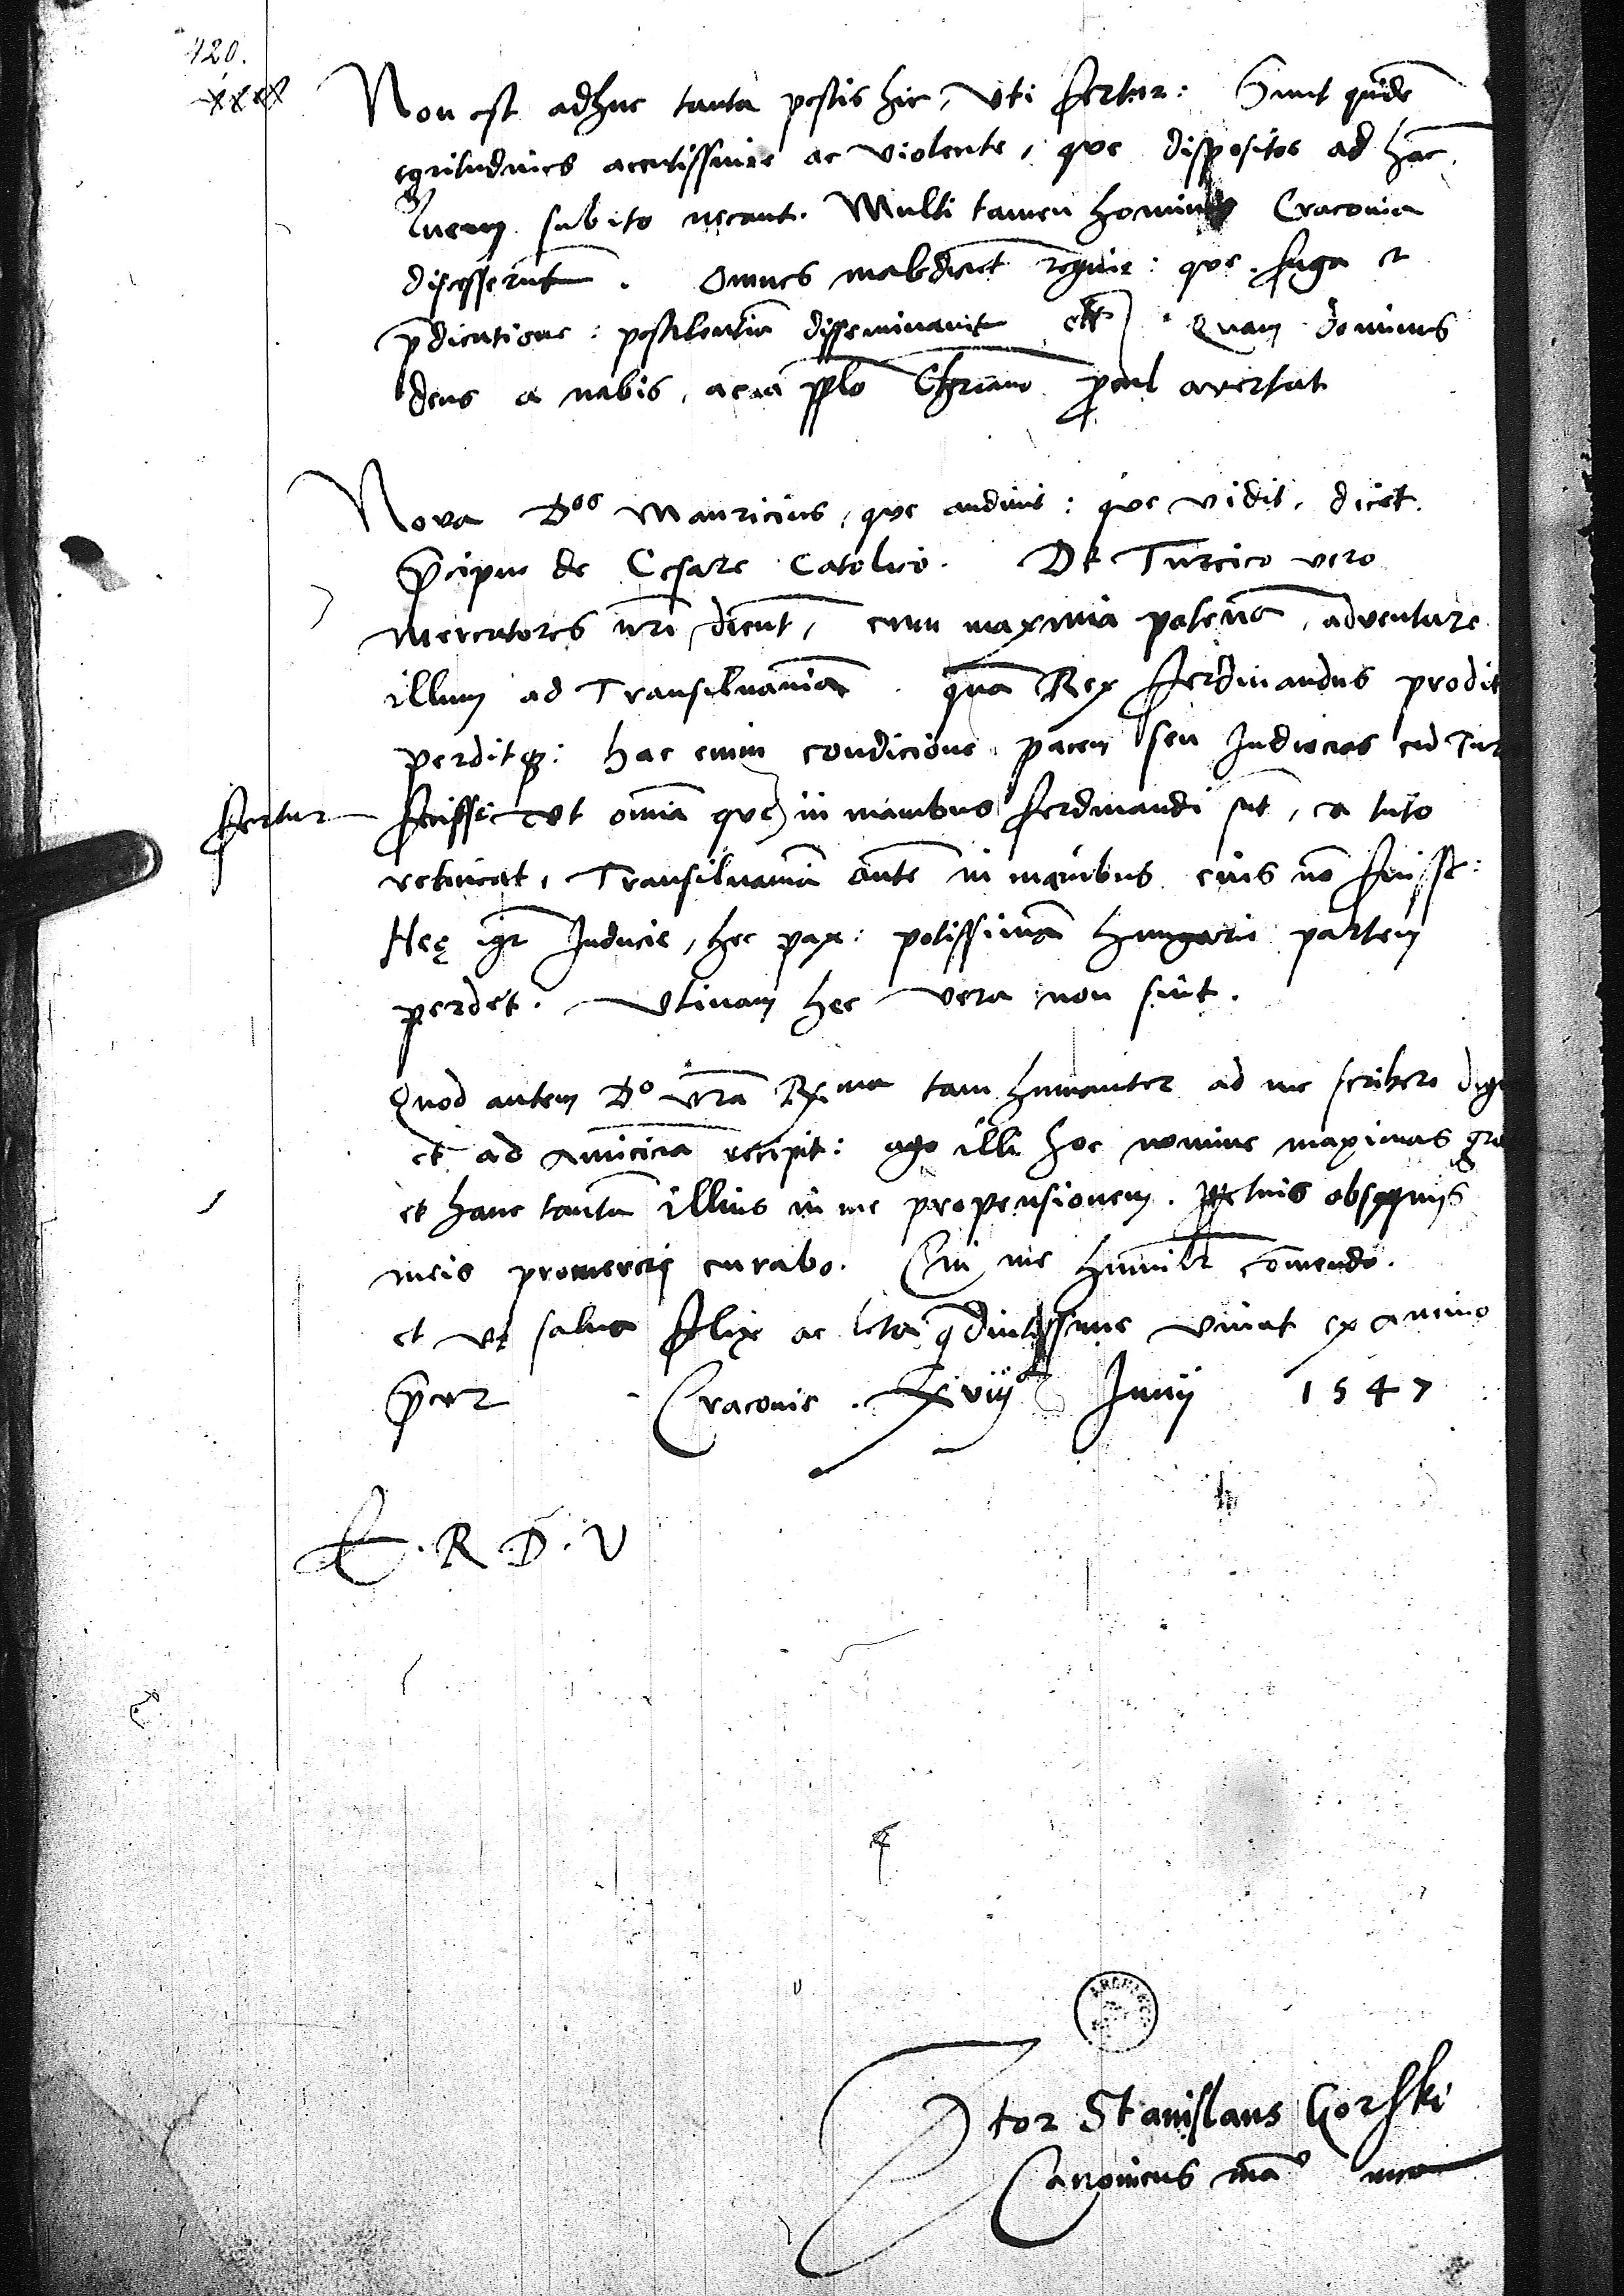 420.
Non est adhuc tanta pestis hic, uti fertur: Sunt quidē
egritudines acutissime ac violente, que dispositos ad hāc
luem subito necant. Multi tamen homines Cracovia
discesserūt. Omnes maledicūt regine: que fuga et
p̄dicatione: pestilentiā disseminavit. Quam dominus
deus a nobis, ac a pplo Chriano procul avertat
Nova Dos Mauricius, que audivit: que vidit, dicet.
P̄cipue de Cesare Catolico. De Turcico vero
mercatores nr̄i dicūt, cum maxima potentia, adventare
illum ad Transilvaniā. quā Rex Ferdinandus prodit
perditq: hac enim condicione pacem seu Inducias cū Tur
fertur
fecisse Ut omīa que in manibus Ferdinandi sūt, ea tuto
retineat, Transilvaniā autē in manibus eius nō fuisse:
Hec igr Inducie, hec pax: potissimā Hungarie partem
perdet. Utinam hec vera non sint.
Quod autem Do vr̄a Rma tam humaniter ad me scribere dig
et ad amiciciā recipit: ago illi hoc nomine maximas gra
et hanc tantā illius in me propensionem. obsequiis
meis promereri curabo. Cui me humilr cōmendo.
et ut salva felix ac leta q̄ diutissime vivat ex animo
p̄cor Cracovie. xviij Junij 1547
E. R. D. V
tor Stanislaus Gorski
Canonicus mā mea